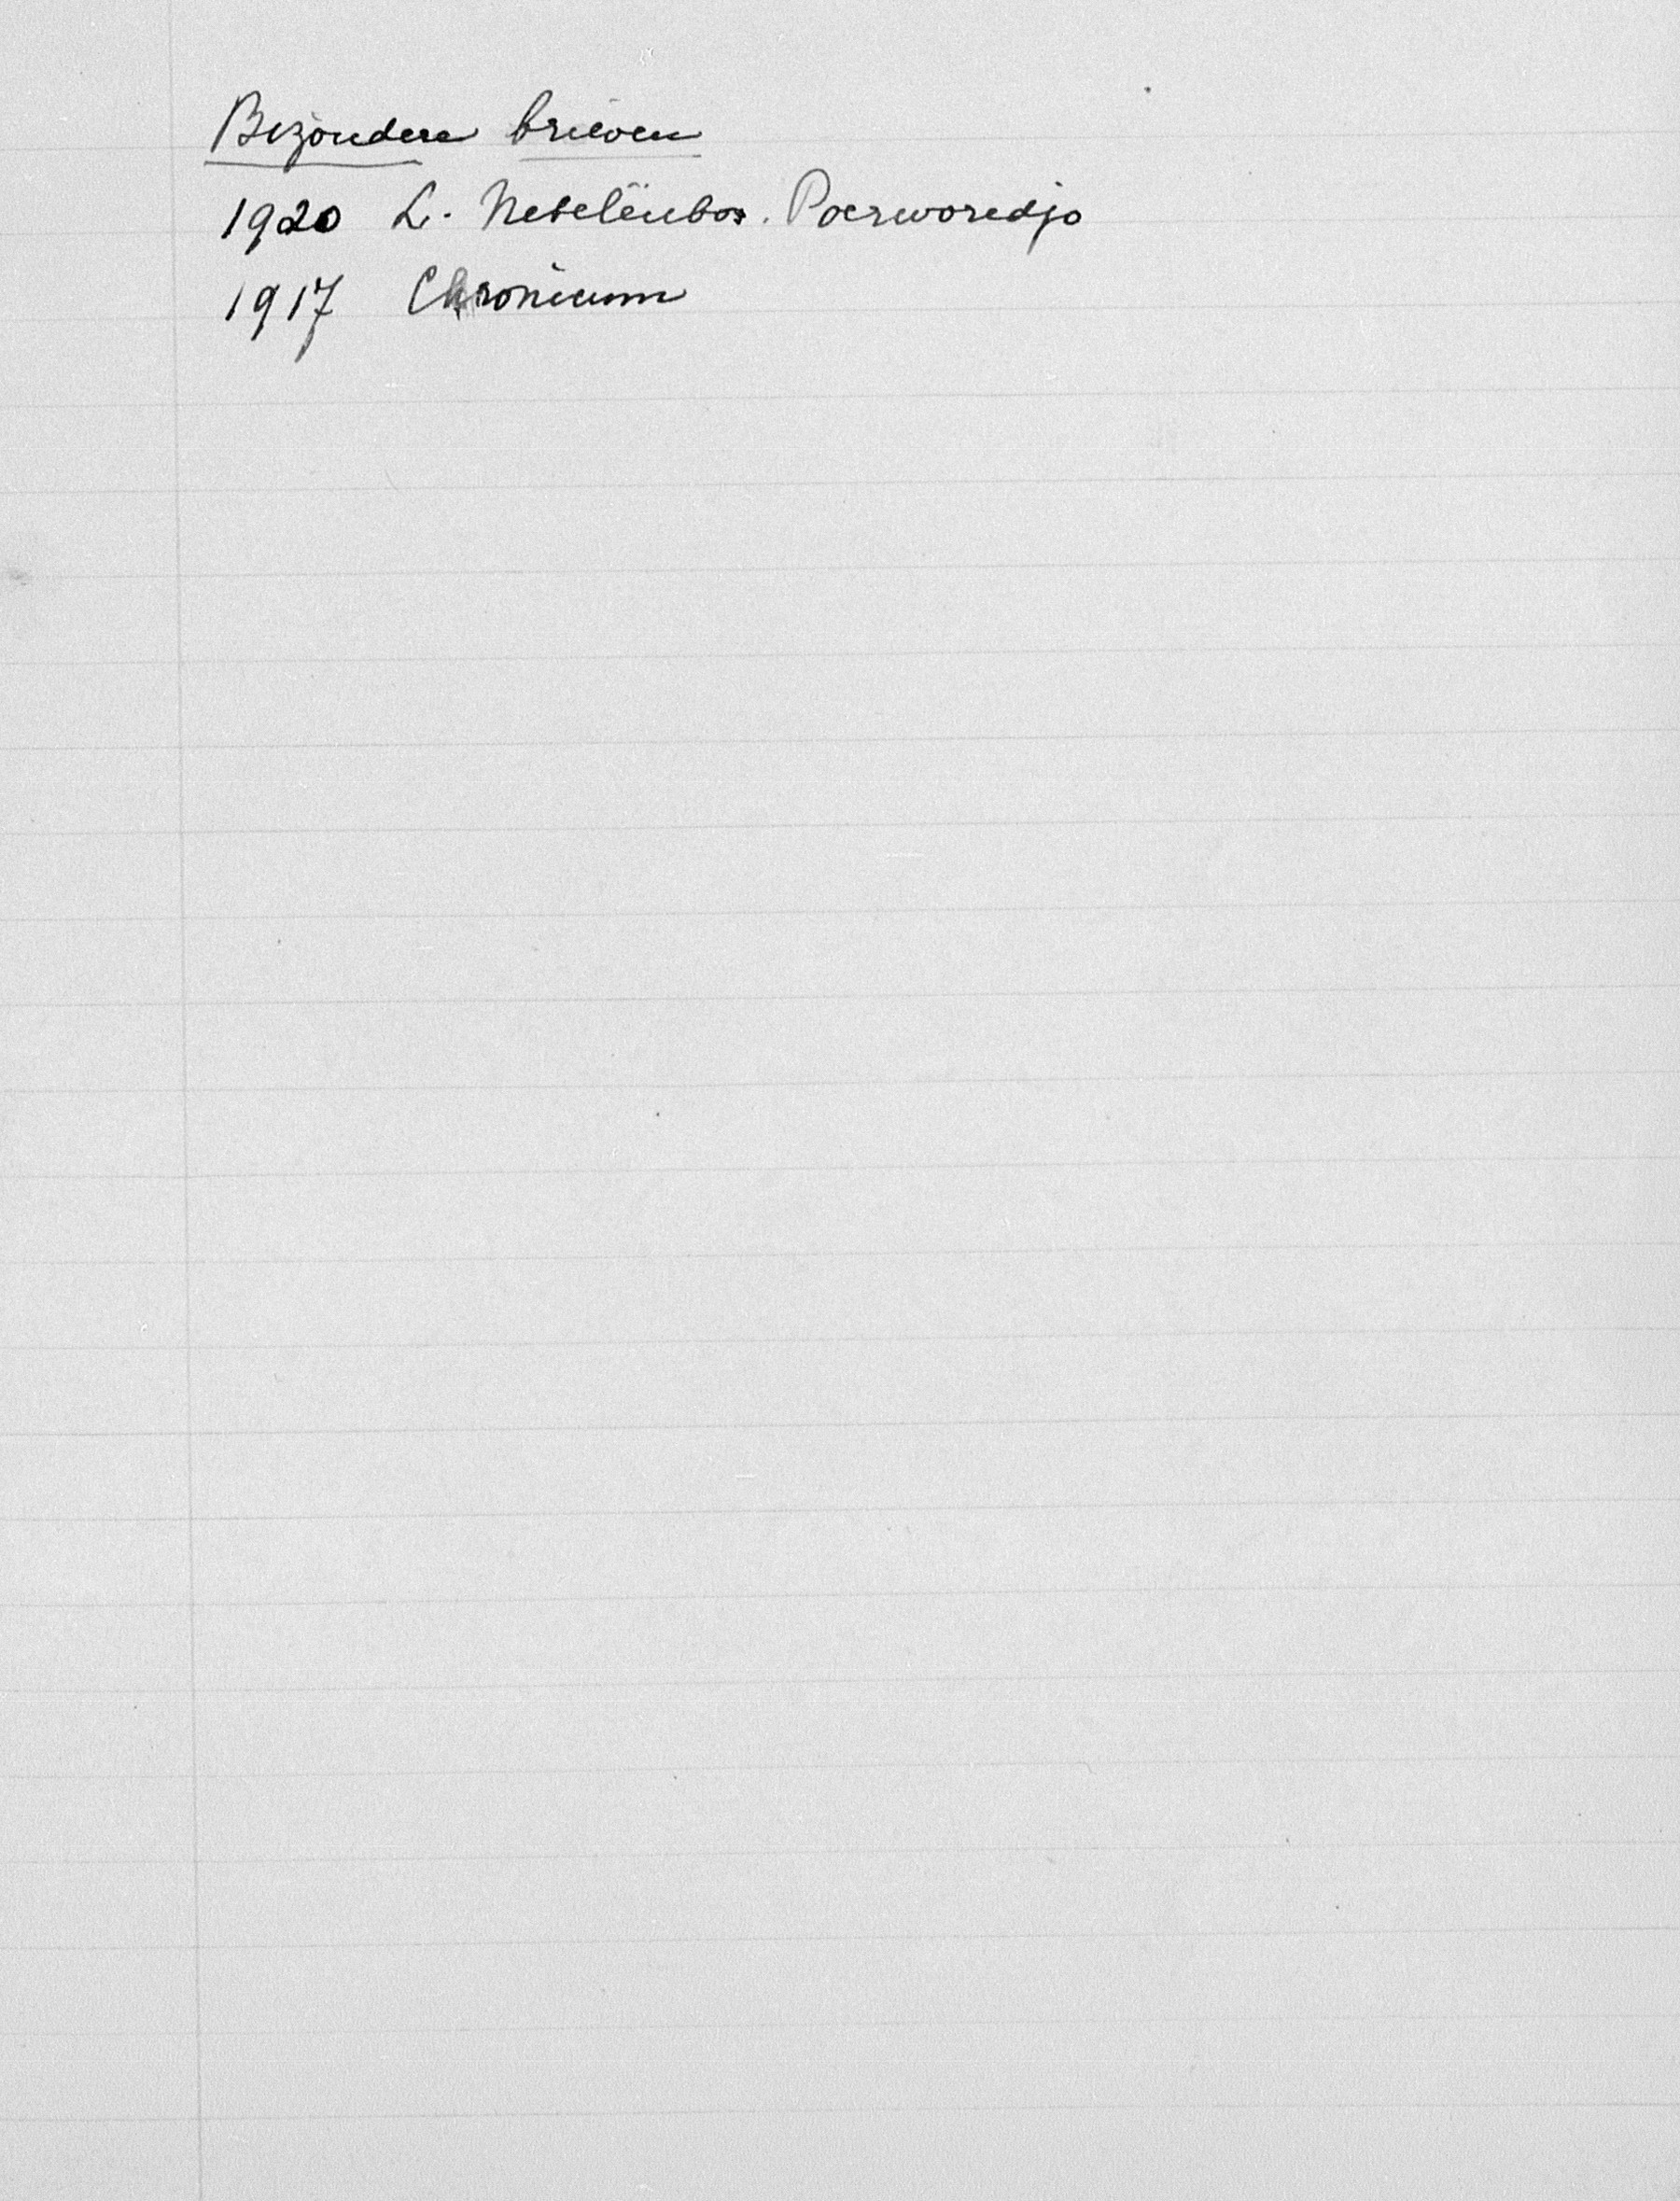 Bizondere brieven
1920 L. Netelenbos. Poerworedjo
1917 Chronicum